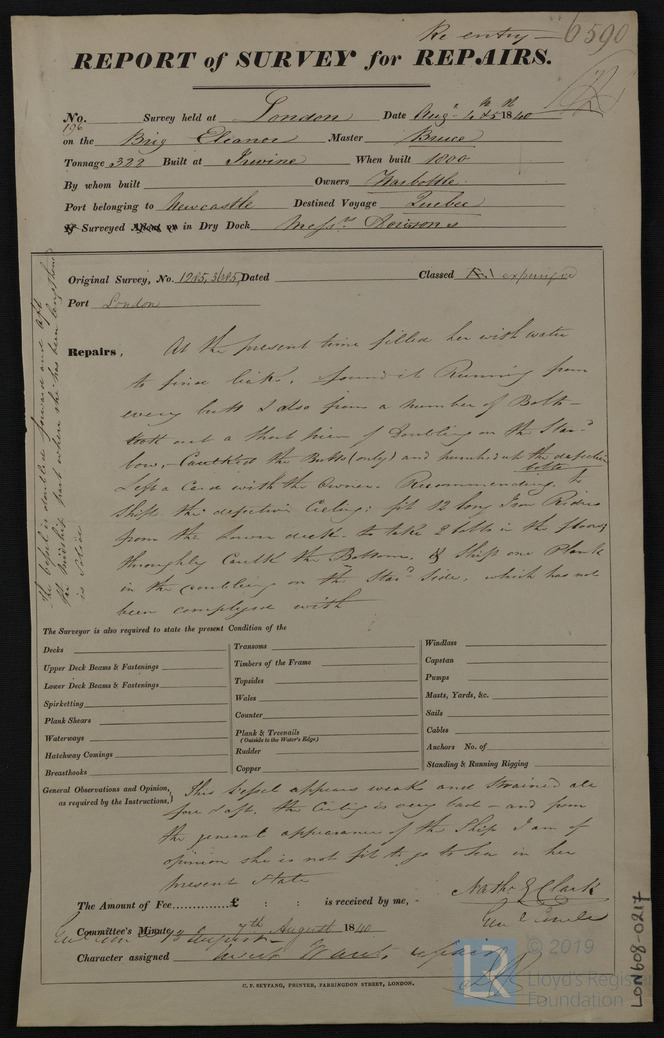 Re entry — 6590
REPORT of SURVEY for REPAIRS.
No. 196 Survey held at London Date Augt 4th & 5th 1840
on the Brig Eleanor Master Bruce
Tonnage 322 Built at Irvine When built 1800
By whom built Owners Harbottle
Port belonging to Newcastle Destined Voyage Quebec
If Surveyed Afloat or in Dry Dock Messrs
Original Survey, No. 1285, Dated Classed expunged
Port London
Repairs, At the present time filled her with water
to find leak, found it Running from
every butt & also from a number of Bolts —
took out a short piece of Doubling on the Stard
bow, Caulked the Butts (only) and the defective
bolts
Left a Card with the Owner. Recommending to
shift the defective Cieling: fit 12 long Iron Riders
from the lower deck to take 2 bolts in the floors
throughly Caulk the Bottom, & Ship one Plank
in the doubling on the Stard side, which has not
been complyed with
The Vessel is doubled forward and aft
the midship part where she has been lengthened
is
The Surveyor is also required to state the present Condition of the
Decks
Upper Deck Beams & Fastenings
Lower Deck Beams & Fastenings
Spirketting
Plank Shears
Waterways
Hatchway Comings
Breasthooks
Transoms
Timbers of the Frame
Topsides
Wales
Counter
Plank & Treenails
(Outside to the Water's Edge)
Rudder
Copper
Windlass
Capstan
Pumps
Masts, Yards, &c.
Sails
Cables
Anchors No. of
Standing & Running Rigging
General Observations and Opinion, as required by the Instructions,
This Vessel appears weak and strained
fore & aft. the Cieling is very bad — and from
the general appearance of the Ship I am of
opinion she is not fit to go to Sea in her
present State
The Amount of Fee £ : : is received by me, - Nathl G Clark
Committee's Minute 7th August 1840
Character assigned Wants repair
C. F. SEYFANG, PRINTER, FARRINGDON STREET, LONDON.
LON608-0217
© 2019
LR
Lloyd's Register
Foundation